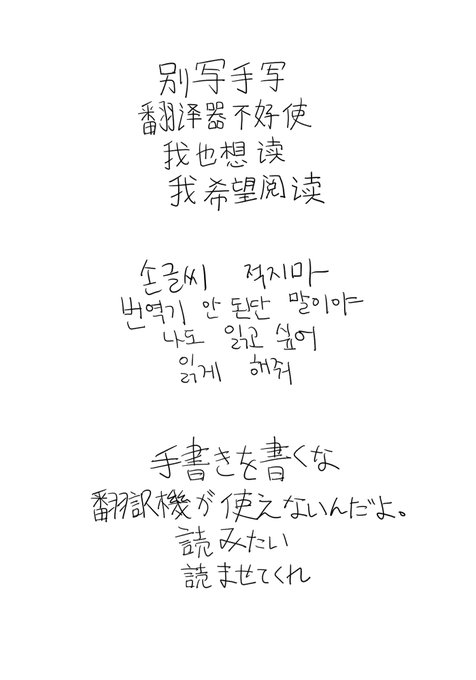 别写手写
翻译器不好使
我也想读
我希望阅读
손글씨 적지마
번역기 안 된단 말이야
나도 읽고 싶어
읽게 해줘
手書きを書くな
翻訳機が使えないんだよ。
読みたい
読ませてくれ